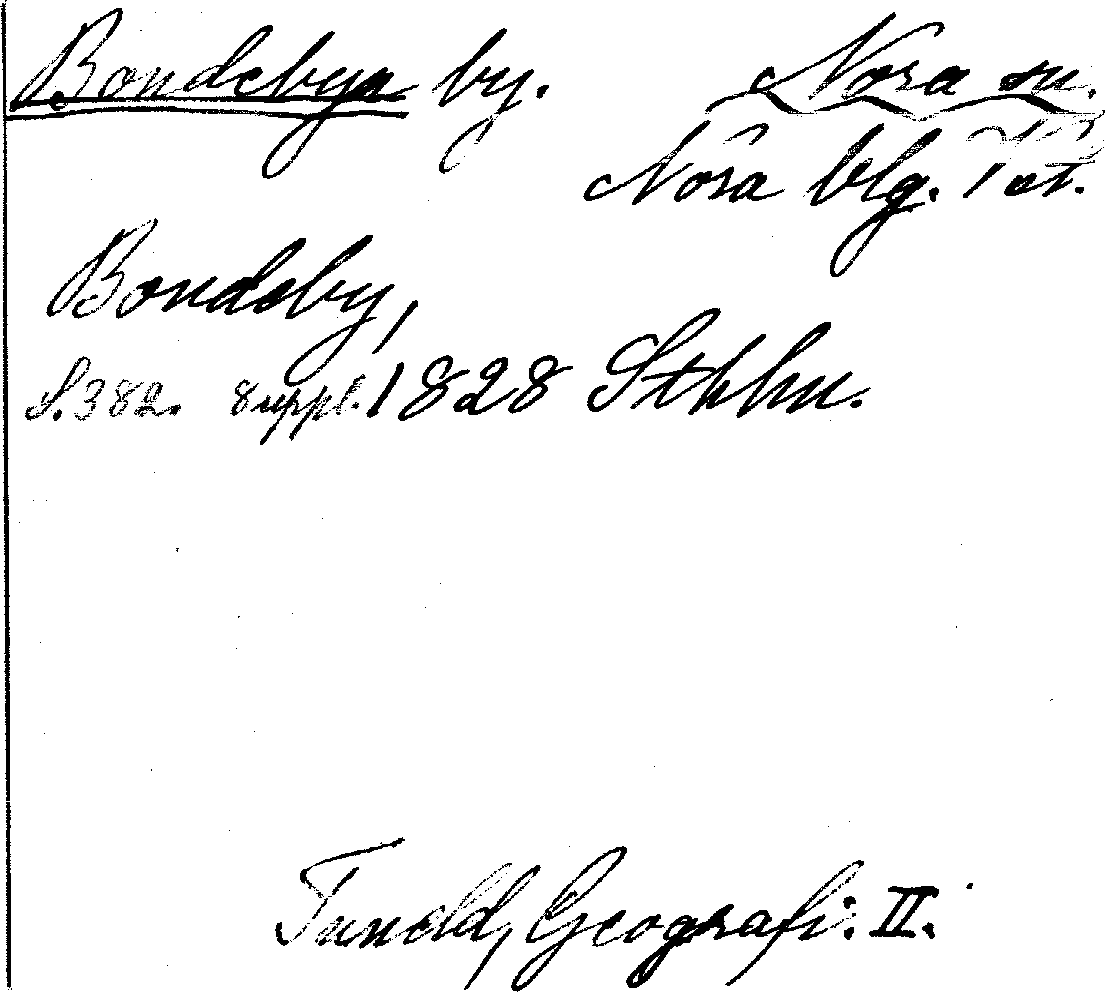 Bondebyn by. Nora sn.
Nora blg. 1 st.
Bondeby,
S. 382. Suppl. 1828 Sthlm.
Tuneld, Geografi: II.